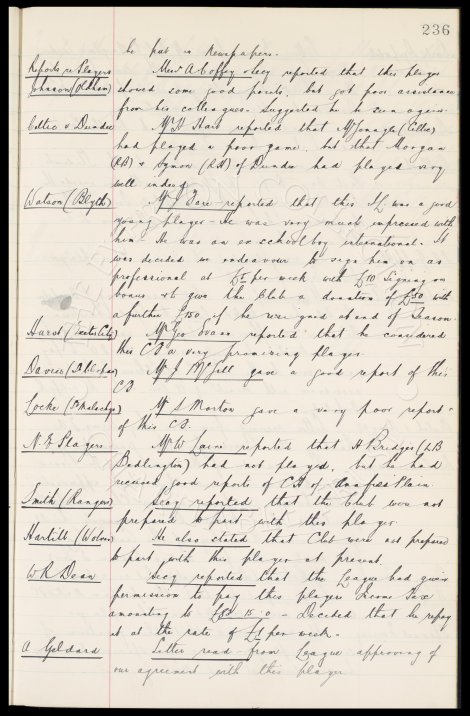 236
be put in Newspapers.
Reports re Players
Johnson (Oldham)
Messrs A Coffey & Secy reported that this player
showed some good points, but got poor assistance
from his colleagues. Suggested he be seen again.
Celtic v Dundee
Mr H Hart reported that McGonagle (Celtic)
had played a poor game, but that Morgan
(RB) & Symon (LH) of Dundee had played very
well indeed
Watson (Blyth)
Mr J Fare reported that this IL was a good
young player. He was very much impressed with
him. He was an ex schoolboy international. It
was decided we endeavour to sign him on as
professional at £5 per week with £10 Signing on
bonus & to give the Club a donation of £50 with
a further £150 if he was good at end of Season.
Hurst (Exeter City)
Mr Geo Evans reported that he considered
this CB a very promising player.
Davies
Mr J McGill gave a good report of this
CB
Locke (St Malachys)
Mr S Morton gave a very poor report
of this CB.
N. E Players
Mr W Laine reported that H Bridges (LB
Bedlington) had not played, but he had
received good reports of CH of Annfield Plain
Smith (Rangers)
Secy reported that the Club were not
prepared to part with this player
Hartill (Wolves)
He also stated that Club were not prepared
to part with this player at present.
W R Dean
Secy reported that the League had given
permission to pay this players Income Tax
amounting to 15.0 - Decided that he repay
it at the rate of £1 per week.
A Geldard
Letter read from League approving of
our agreement with this player